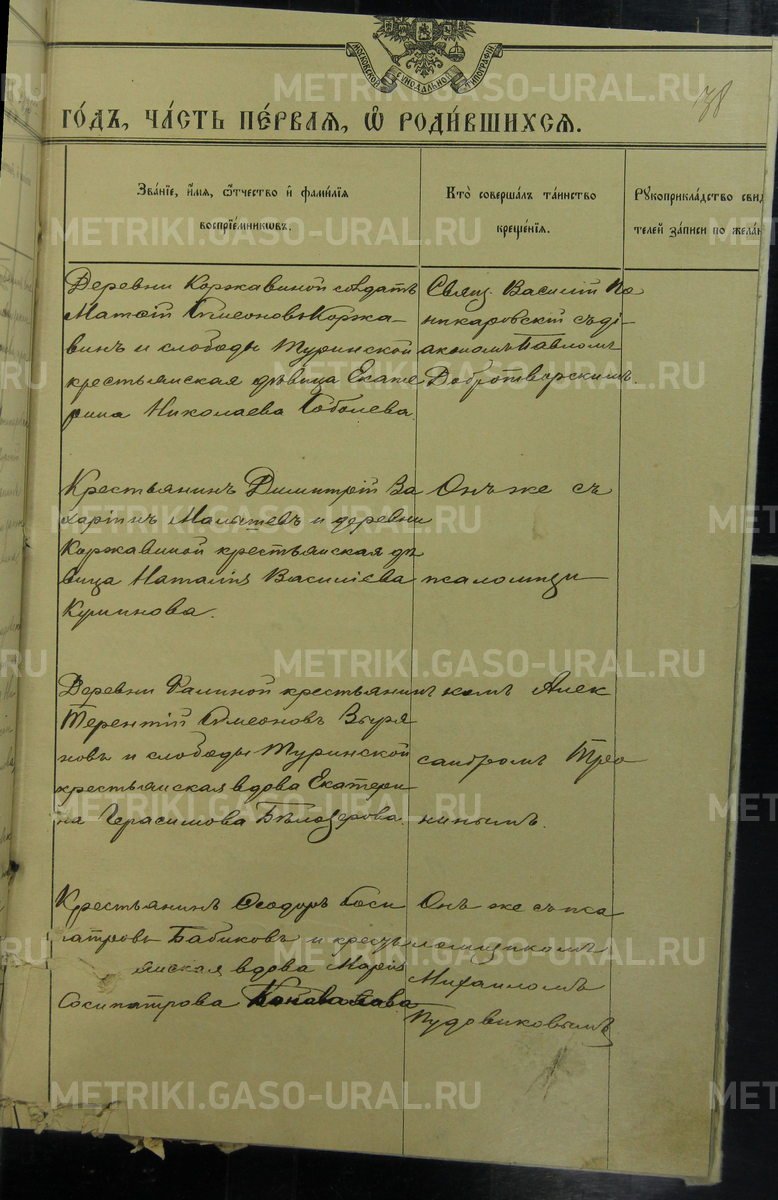 МОСКОВСКОЙ СѴНОДАЛЬНОЙ ТИПОГРАФІИ
38
ГО́ДЪ, ЧА́СТЬ ПЕ́РВАЯ, Ѿ РОДИ́ВШИХСЯ.
Зва́нїе, и́мя, ѻ҆́тчество и҆ фами́лїя
воспрїе́мникѡвъ.
Кто̀ соверша́лъ та́инство
креще́нїя.
Рꙋкоприкла́дство свид
телей за́писи по жела́н
Деревни Коржавиной солдатъ
Матѳій Симеоновъ Коржа-
винъ и слободы Туринской
крестьянская дѣвица Екате
рина Николаева Соболева.
Свящ. Василій По
никаровскій съ ді-
акономъ Павломъ
Добротворскимъ.
Крестьянинъ Димитрій За
харінъ Малышевъ и деревни
Коржавиной крестьянская дѣ
вица Наталія Василіева
Куминова.
Онъ же съ
псаломщи-
Деревни Фалиной крестьянинъ
Терентій Симеоновъ Выря
новъ и слободы Туринской
крестьянская вдова Екатери
на Герасимова Бѣлозерова.
комъ Алек
сандромъ Тро
нинымъ.
Крестьянинъ Ѳеодоръ Соси
патровъ Бабиковъ и кресть
янская вдова Марія
Сосипатрова Коновалова
Онъ же съ пса
ломщикомъ
Михаиломъ
Пудовиковымъ
METRIKI.GASO-URAL.RU